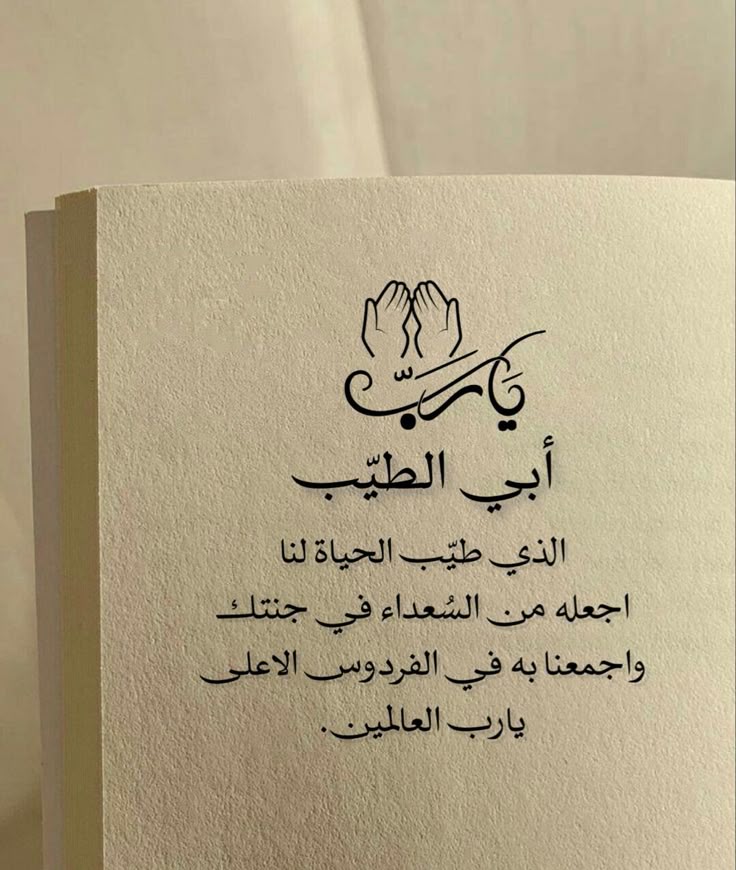 يَاربّ
أبي الطيّب
الذي طيّب الحياة لنا
اجعله من السُعداء في جنتك
واجمعنا به في الفردوس الاعلى
يارب العالمين.